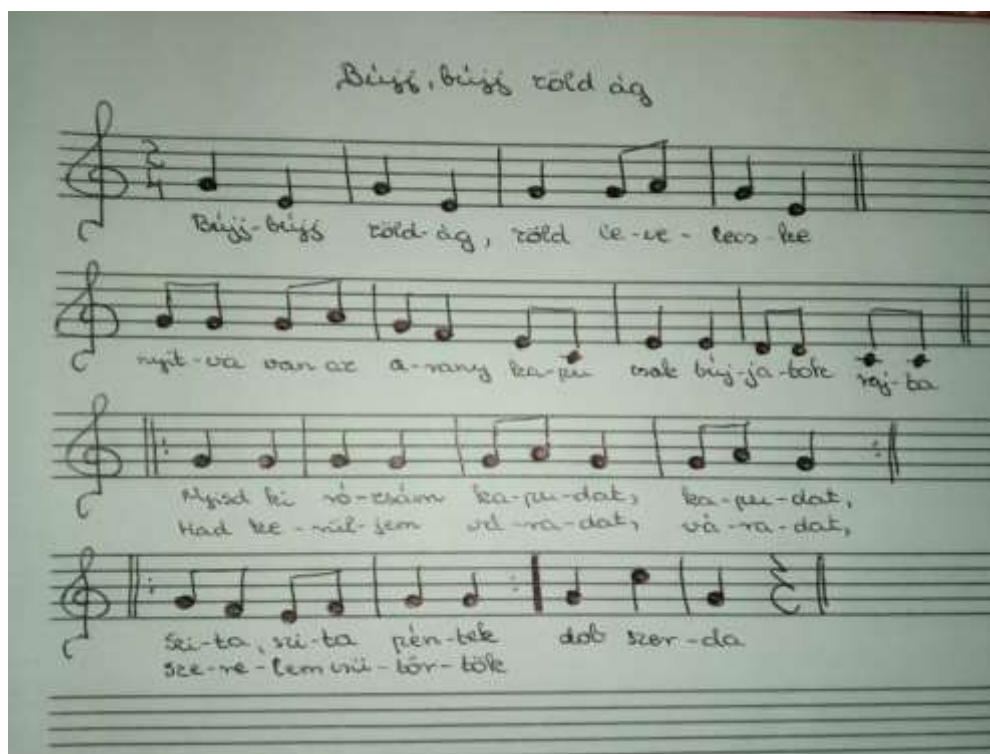 Bújj, bújj zöld ág
2
4
Bújj-bújj zöld-ág, zöld le-ve-lecs-ke
nyit-va van az a-rany ka-pu csak búj-ja-tok raj-ta
Nyisd ki ró-zsám ka-pu-dat, ka-pu-dat,
Had ke-rül-jem vá-ra-dat, vá-ra-dat,
Szi-ta, szi-ta pén-tek dob szer-da
sze-re-lem csü-tör-tök